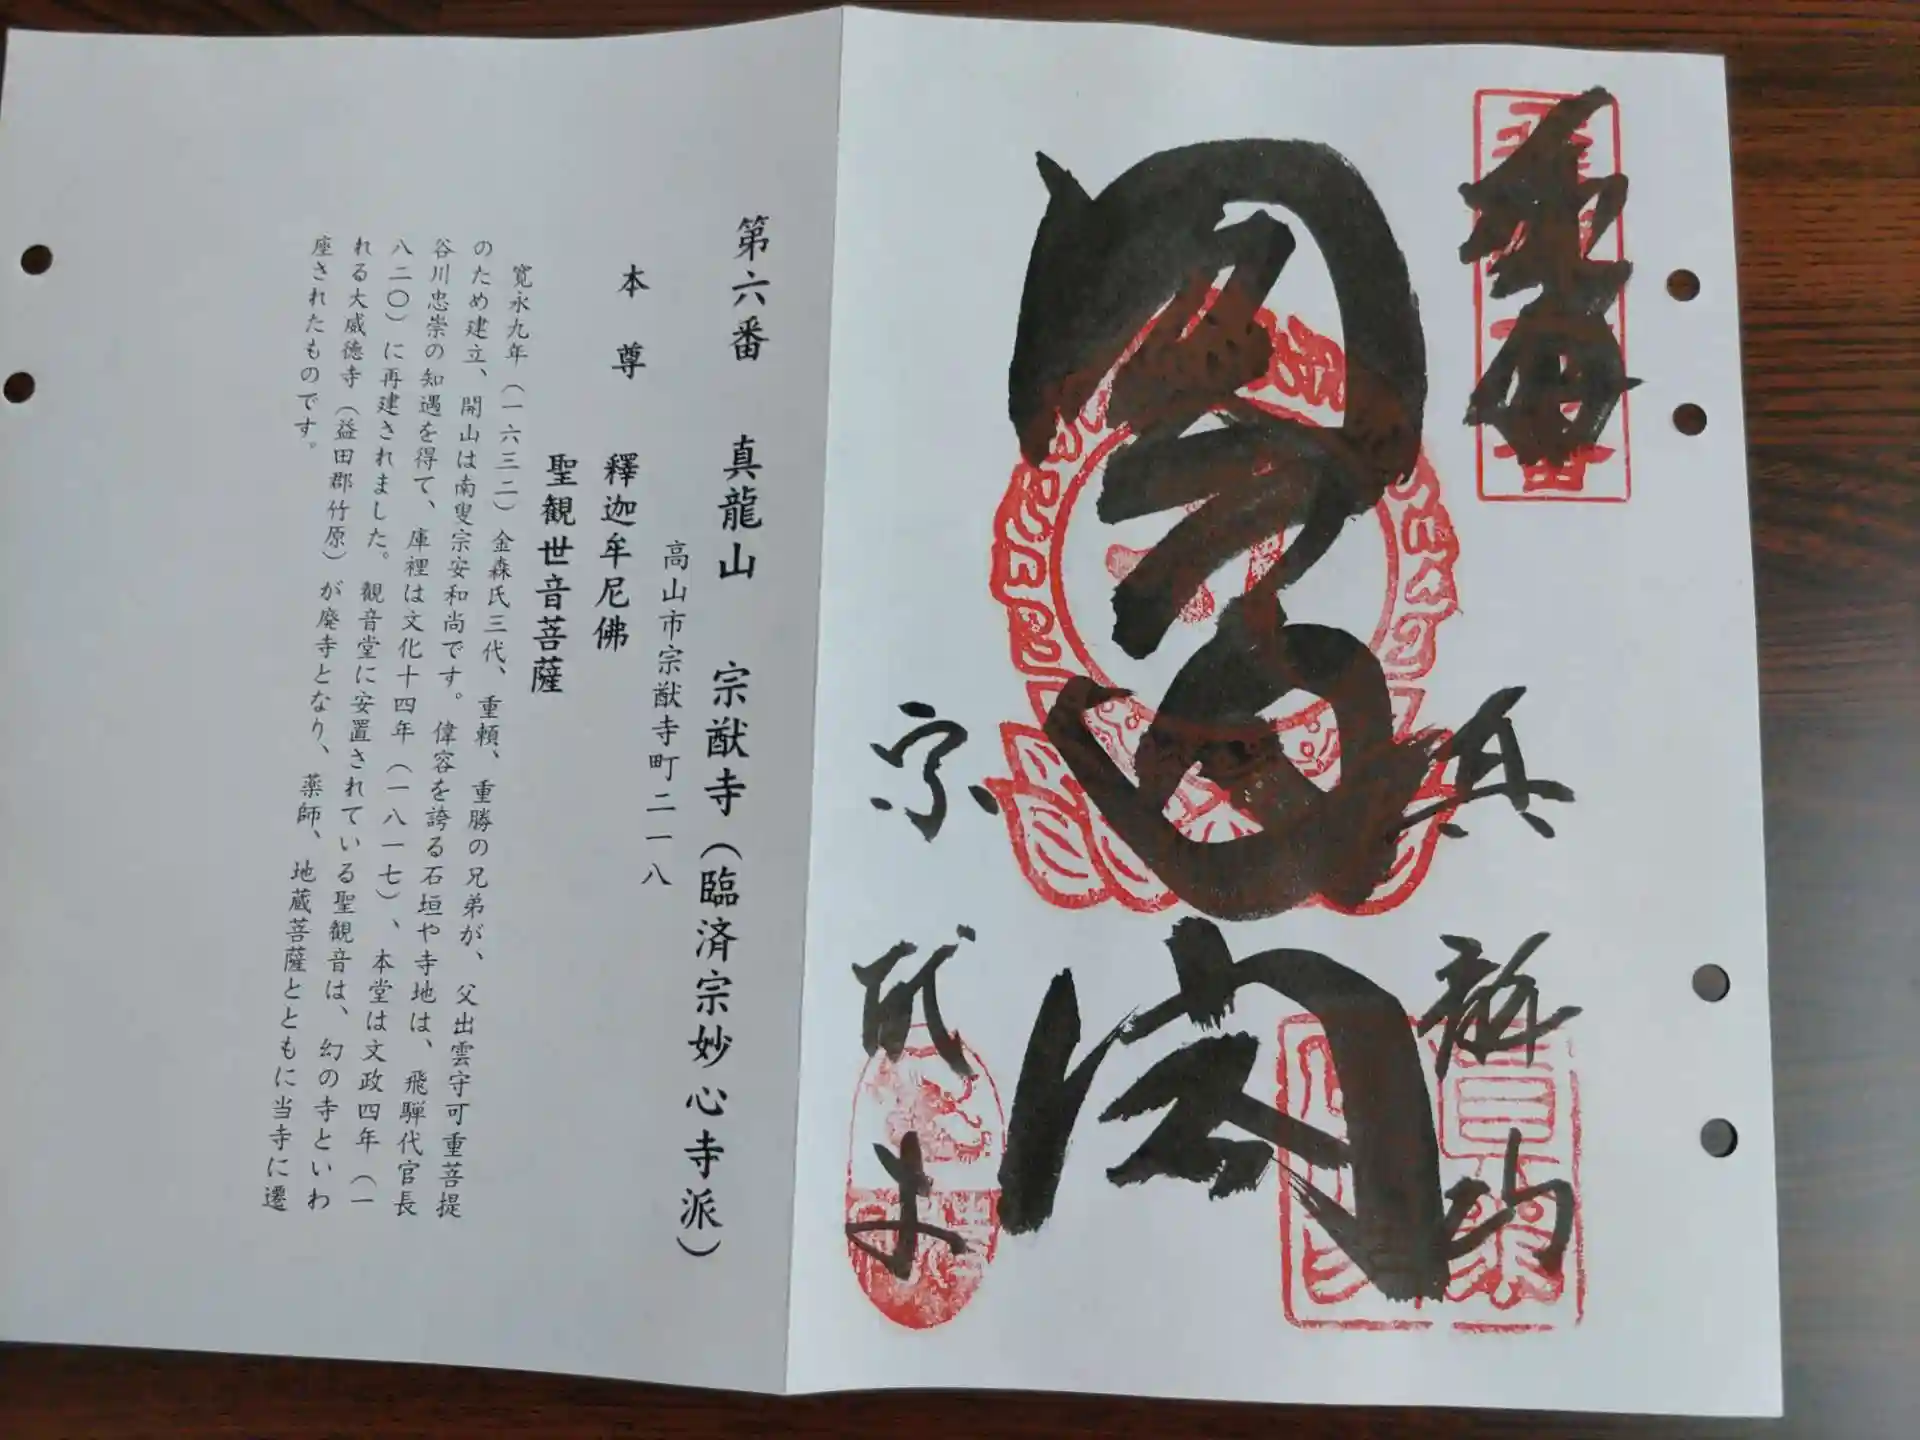 圓通閣
真龍山
宗猷寺
第六番 真龍山 宗猷寺（臨済宗妙心寺派）
高山市宗猷寺町二一八
本尊 釋迦牟尼佛
聖観世音菩薩
寛永九年（一六三二）金森氏三代、重頼、重勝の兄弟が、父出雲守可重菩提
のため建立、開山は南叟宗安和尚です。偉容を誇る石垣や寺地は、飛騨代官長
谷川忠崇の知遇を得て、庫裡は文化十四年（一八一七）、本堂は文政四年（一
八二〇）に再建されました。観音堂に安置されている聖観音は、幻の寺といわ
れる大威徳寺（益田郡竹原）が廃寺となり、薬師、地蔵菩薩とともに当寺に遷
座されたものです。